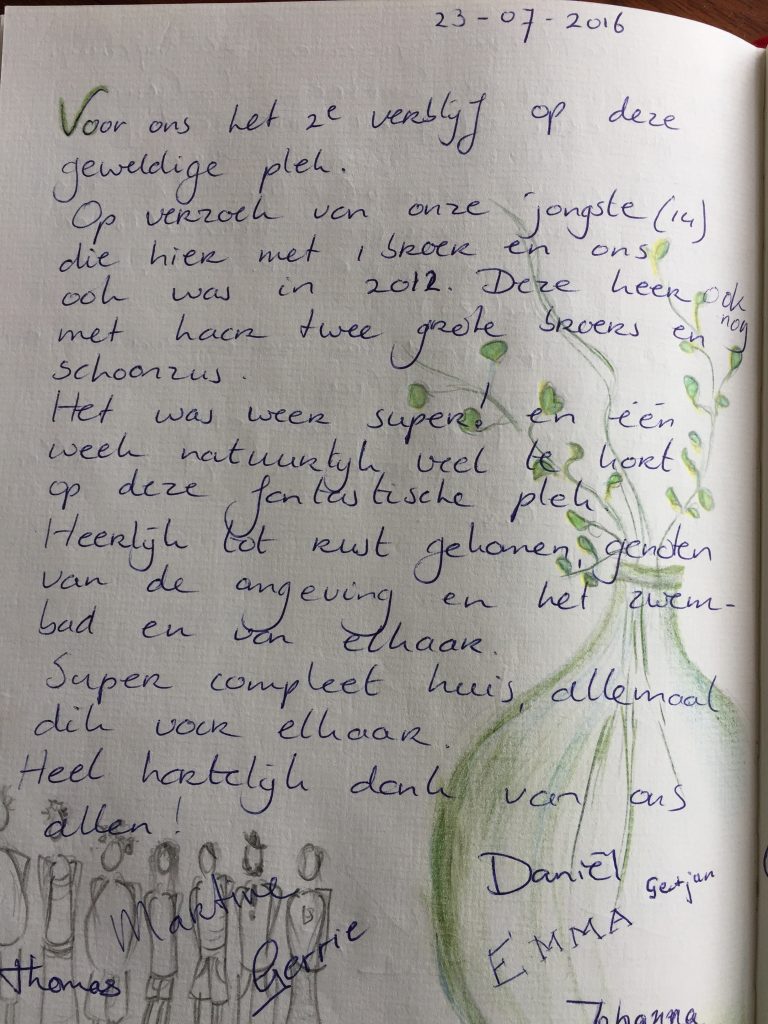 23-07-2016
Voor ons het 2e verblijf op deze
geweldige plek.
Op verzoek van onze jongste (14)
die hier met 1 broer en ons
ook was in 2012. Deze keer ook
met haar twee grote broers en nog
schoonzus.
Het was weer super! en één
week natuurlijk veel te kort
op deze fantastische plek.
Heerlijk tot rust gekomen, genoten
van de omgeving en het zwem-
bad en van elkaar.
Super compleet huis, allemaal
dik voor elkaar.
Heel hartelijk dank van ons
allen!
Daniël
Gertjan
Martine
EMMA
Gerrie
Thomas
Johanna